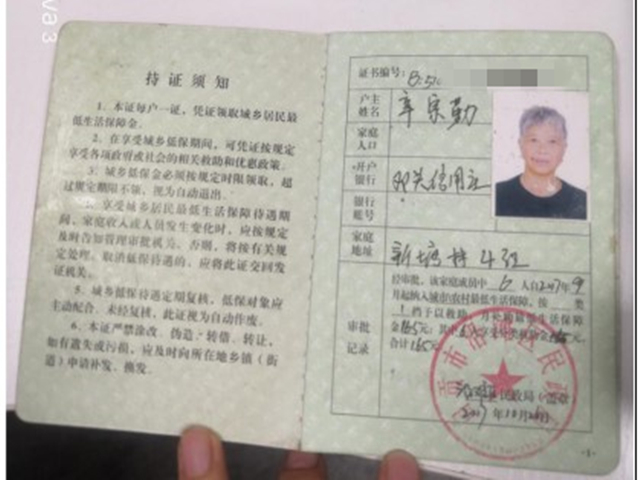 持证须知
1、本证每户一证，凭证领取城乡居民最
低生活保障金。
2、在享受城乡低保期间，可凭证按规定
享受各项政府或社会的相关救助和优惠政策。
3、城乡低保金必须按规定时限领取，超
过规定期限不领，视为自动退出。
4、享受城乡居民最低生活保障待遇期
间，家庭收入或人员发生变化时，应按规定
及时告知管理审批机关。否则，将按有关规
定处理。取消低保待遇的，应将此证交回发
证机关。
5、城乡低保待遇定期复核，低保对象应
主动配合。未经复核，此证视为自动作废。
6、本证严禁涂改、伪造、转借、转让，
如有遗失或污损，应及时向所在地乡镇（街
道）申请补发、换发。
证书编号：
户主
姓名
家庭
人口
开户
银行
信用社
银行
账号
家庭
地址
审批
记录
经审批，该家庭成员中6人自2007年9
月起纳入城市/农村最低生活保障，按 类
1档予以救助，月发给最低生活保障
金165元；其中
合计165元。
民政局（盖章）
2007年10月20日
-1-